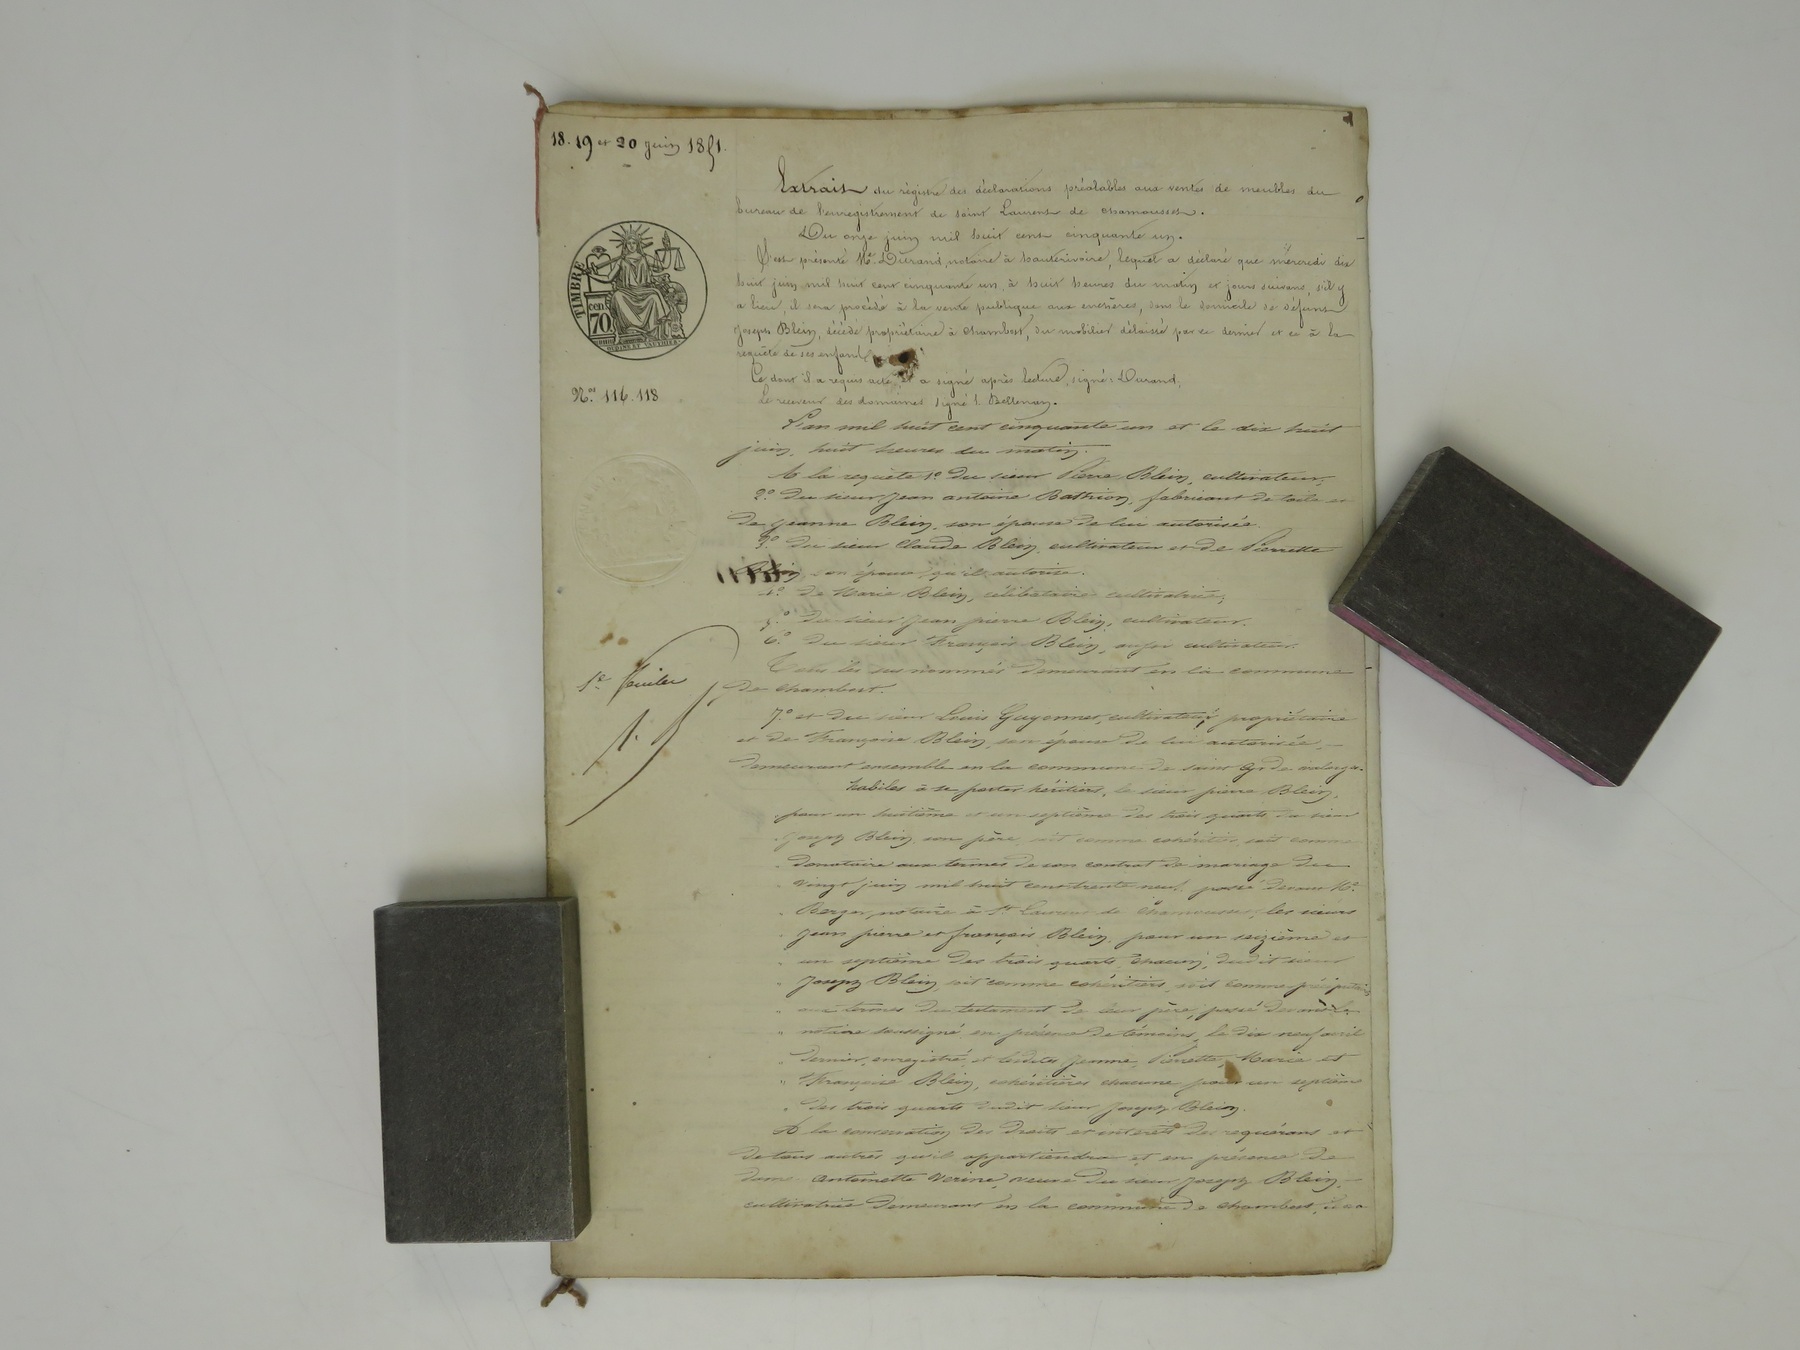 18. 19 et 20 juin 1851.
Extrait du régistre des déclarations préalables aux ventes de meubles du
bureau de l'enregistrement de saint Laurent de chamousset.
Du onze juin mil huit cent cinquante un.
S'est présenté Me Durand, notaire à hauterivoire, lequel a déclaré que mercredi dix
huit juin mil huit cent cinquante un, à huit heures du matin et jours suivans, s'il y
a lieu, il sera procédé à la vente publique aux enchères, dans le domicile de défunt
Joseph Blein, décédé propriétaire à Chambost, du mobilier délaissé par ce dernier et ce à la
requête de ses enfants
Ce dont il a requis acte, et a signé après lecture, signé: Durand,
Le receveur des domaines signé
TIMBRE
cen 70
Nos 116.118
L'an mil huit cent cinquante un et le dix huit
juin, huit heures du matin.
A la requête 1o du sieur Pierre Blein, cultivateur,
2o du sieur Jean antoine Bathion, fabricant de toile et
de Jeanne Blein, son épouse de lui autorisée.
3o du sieur Claude Blein, cultivateur et de Pierrette
Blein, son épouse, qu'il autorise.
4o de Marie Blein, célibataire cultivatrice,
5o du sieur Jean pierre Blein, cultivateur.
6o du sieur François Blein, aussi cultivateur.
Tous les sus nommés demeurant en la commune
de Chambost.
1er feuillet
7o et du sieur Louis Guyonnet, cultivateur, propriétaire
et de Françoise Blein, son épouse de lui autorisée,
demeurant ensemble en la commune de saint
habiles à se porter héritiers, le sieur pierre Blein,
pour un huitième et un septième des trois quarts du sieur
Joseph Blein son père, soit comme cohéritier, soit comme
donataire aux termes de son contrat de mariage du
vingt juin mil huit cent trente neuf, passé devant Me
Berger, notaire à St Laurent de Chamousset, les sieurs
Jean pierre et françois Blein, pour un seizième et
un septième des trois quarts, chacun, dudit sieur
Joseph Blein, soit comme cohéritiers, soit comme préciputaires
aux termes du testament de leur père, passé devant le
notaire soussigné en présence de témoins, le dix neuf avril
dernier, enregistré, et lesdites Jeanne, Pierrette, Marie et
Françoise Blein, cohéritières chacune pour un septième
des trois quarts dudit sieur Joseph Blein.
A la conservation des droits et intérêts des requérans et
de tous autres qu'il appartiendra et en présence de
dame Antoinette Verine, veuve du sieur Joseph Blein,
cultivatrice demeurant en la commune de Chambost, il a